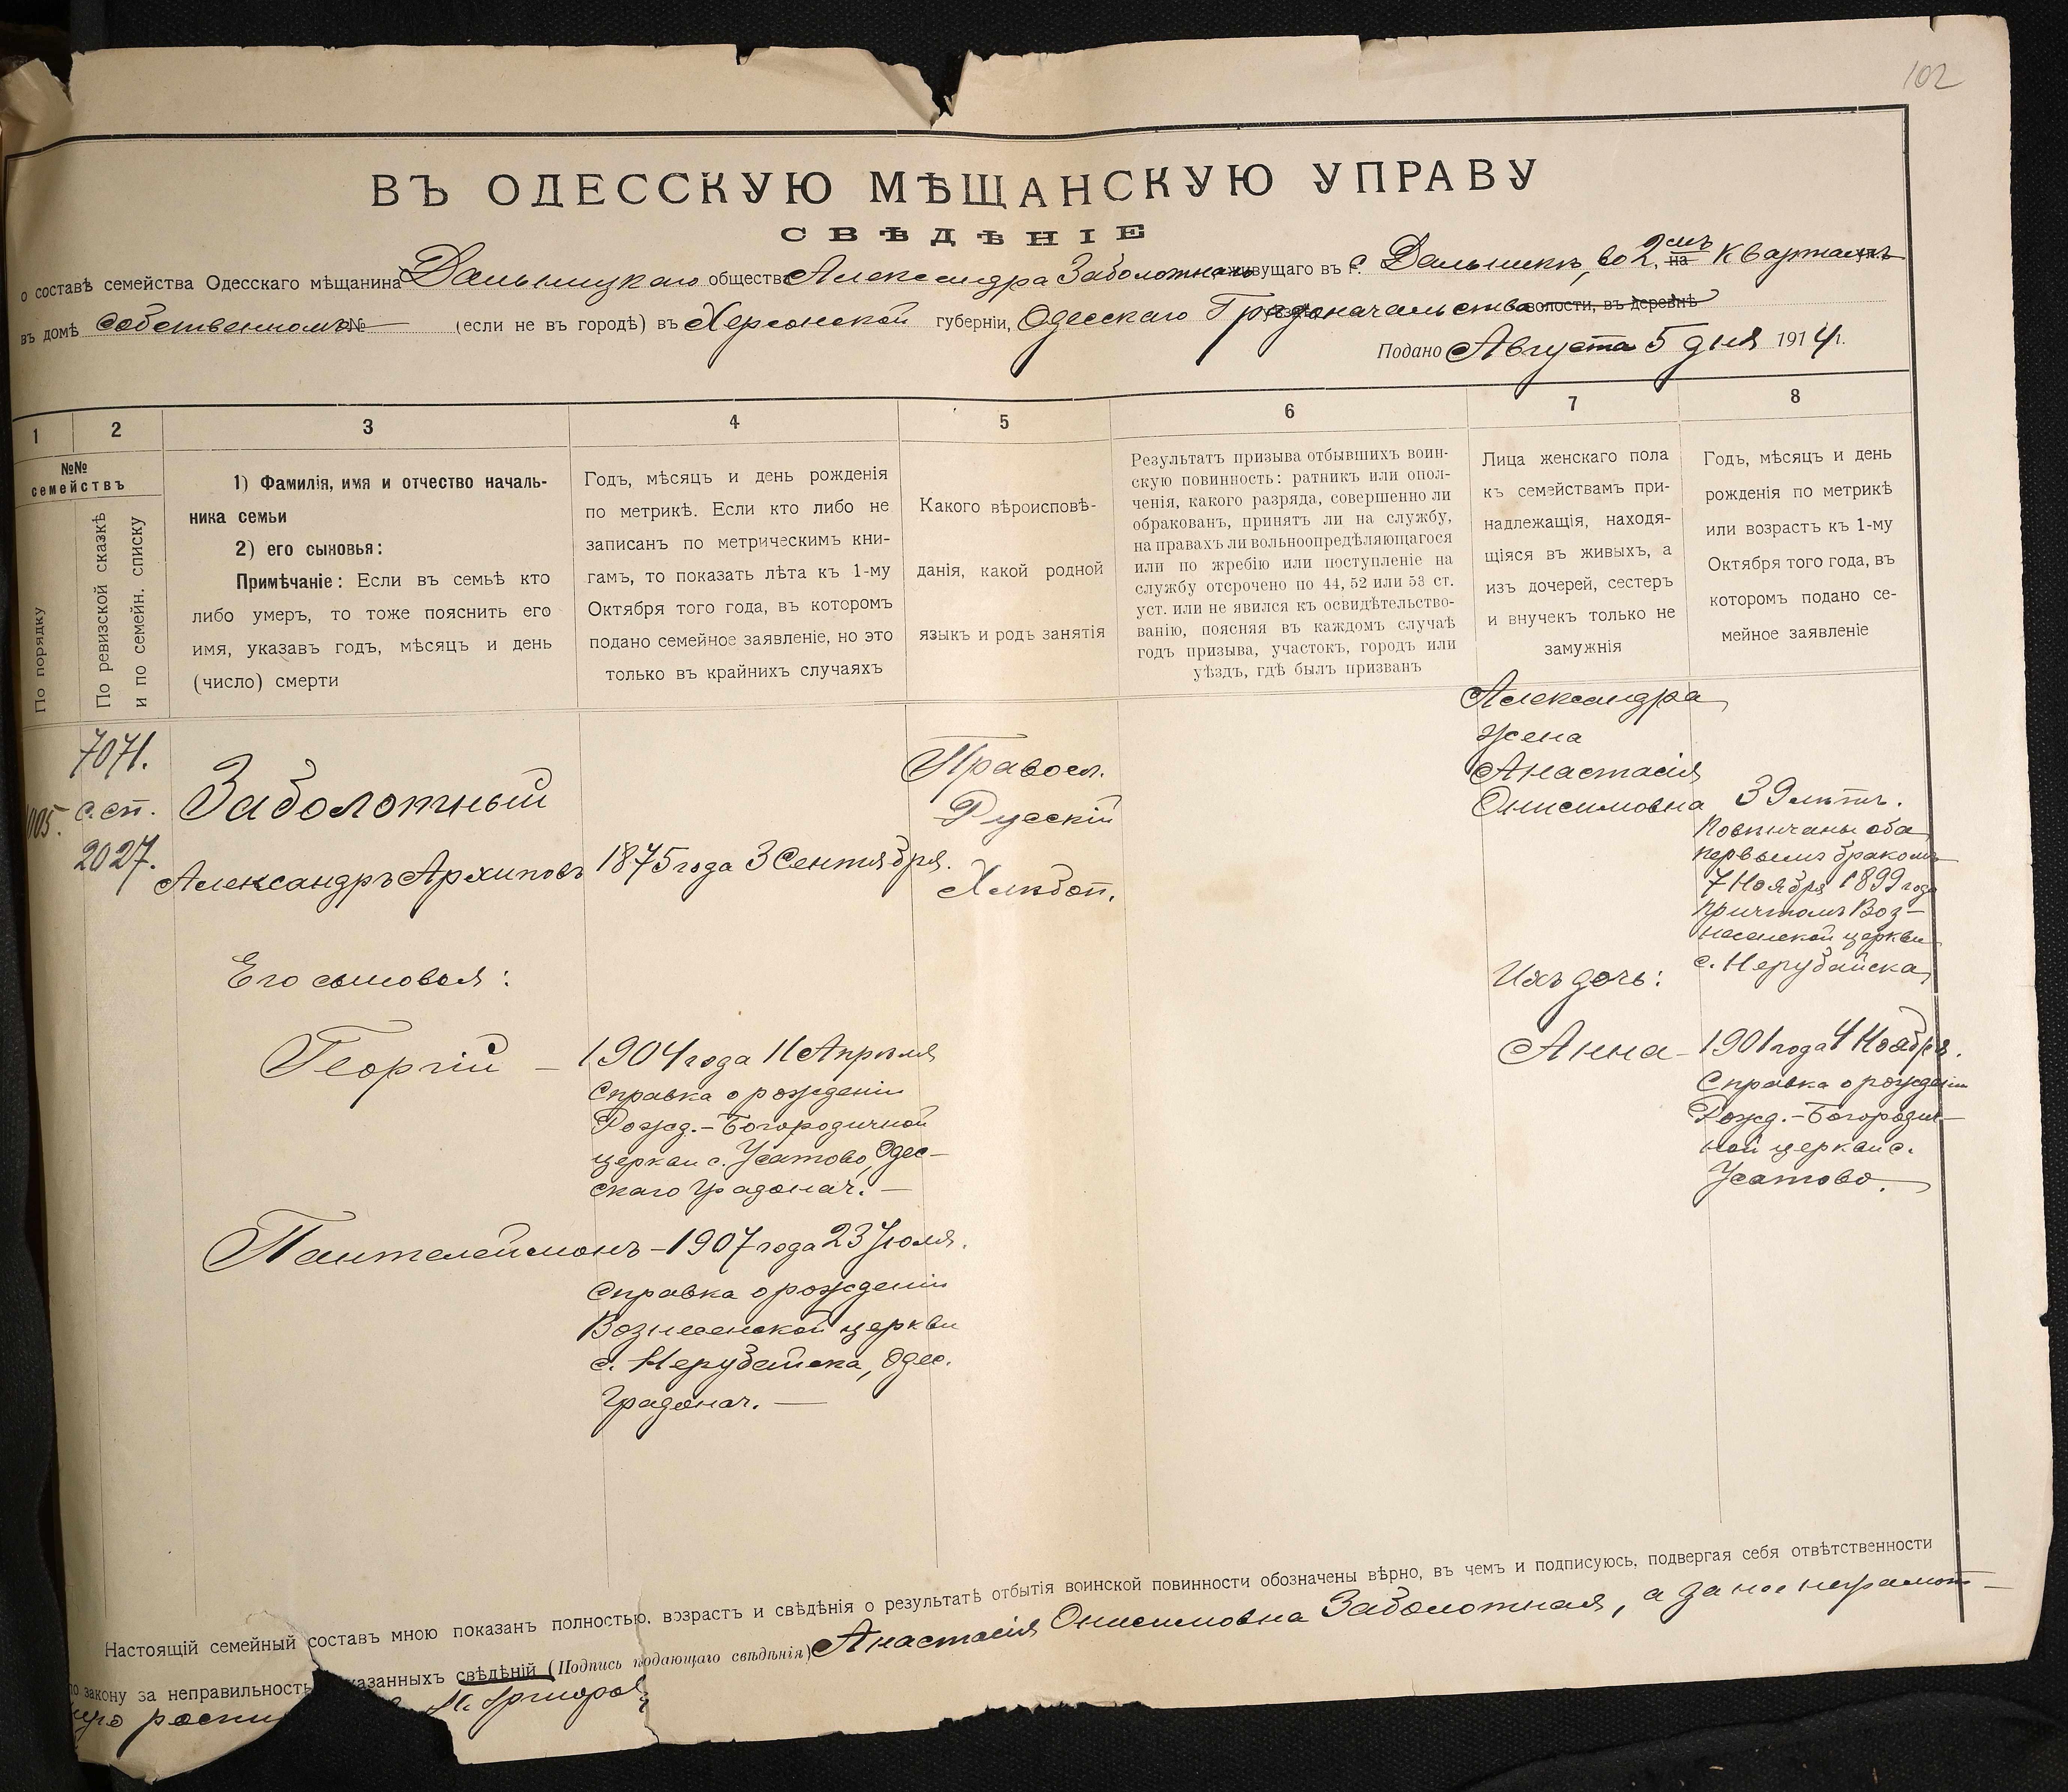 102
ВЪ ОДЕССКУЮ МѢЩАНСКУЮ УПРАВУ
СВѢДѢНІЕ
о составѣ семейства Одесскаго мѣщанина Дальницкаго общества Александра Заболотнаго живущаго въ г. с. Дальникъ, во 2.мъ на Кварталѣ
въ домѣ собственномъ № (если не въ городѣ) въ Херсонской губерніи, Одесскаго Градоначальства волости, въ деревнѣ
Подано Августа 5 дня 1914 г.
1 2 3 4 5 6 7 8
№№ семействъ
По порядку
По ревизской сказкѣ
и по семейн. списку
1) Фамилія, имя и отчество началь-
ника семьи
2) его сыновья:
Примѣчаніе: Если въ семьѣ кто
либо умеръ, то тоже пояснить его
имя, указавъ годъ, мѣсяцъ и день
(число) смерти
Годъ, мѣсяцъ и день рожденія
по метрикѣ. Если кто либо не
записанъ по метрическимъ кни-
гамъ, то показать лѣта къ 1-му
Октября того года, въ которомъ
подано семейное заявленіе, но это
только въ крайнихъ случаяхъ
Какого вѣроисповѣ-
данія, какой родной
языкъ и родъ занятія
Результатъ призыва отбывшихъ воин-
скую повинность: ратникъ или опол-
ченія, какого разряда, совершенно ли
обракованъ, принятъ ли на службу,
на правахъ ли вольноопредѣляющагося
или по жребію или поступленіе на
службу отсрочено по 44, 52 или 53 ст.
уст. или не явился къ освидѣтельство-
ванію, поясняя въ каждомъ случаѣ
годъ призыва, участокъ, городъ или
уѣздъ, гдѣ былъ призванъ
Лица женскаго пола
къ семействамъ при-
надлежащія, находя-
щіяся въ живыхъ, а
изъ дочерей, сестеръ
и внучекъ только не
замужнія
Годъ, мѣсяцъ и день
рожденія по метрикѣ
или возрастъ къ 1-му
Октября того года, въ
которомъ подано се-
мейное заявленіе
005.
7071.
с.сп.
2027.
Заболотный
Александръ Архиповъ
1875 года 3 Сентября.
Правосл.
Русскій
Хлѣбоп.
Александра
жена
Анастасія
Онисимовна
39 лѣтъ.
Повѣнчаны оба
первымъ бракомъ
7 Ноября 1899 года
причтомъ Воз-
несенской церкви
с. Нерубайска
Его сыновья:
Ихъ дочь:
Георгій —
1904 года 11 Апрѣля
Справка о рожденіи
Рожд.-Богородичной
церкви с. Усатово, Одес-
скаго Градонач. —
Анна —
1901 года 4 Ноября.
Справка о рожденіи
Рожд.-Богородич-
ной церкви с.
Усатово.
Пантелеймонъ —
1907 года 23 Іюля.
Справка о рожденіи
Вознесенской церкви
с. Нерубайска, Одес.
Градонач. —
Настоящій семейный составъ мною показанъ полностью, возрастъ и свѣдѣнія о результатѣ отбытія воинской повинности обозначены вѣрно, въ чемъ и подписуюсь, подвергая себя отвѣтственности
по закону за неправильность казанныхъ свѣдѣній (Подпись подающаго свѣдѣнія) Анастасія Онисимовна Заболотная, а за нее неграмот-
ную роспи